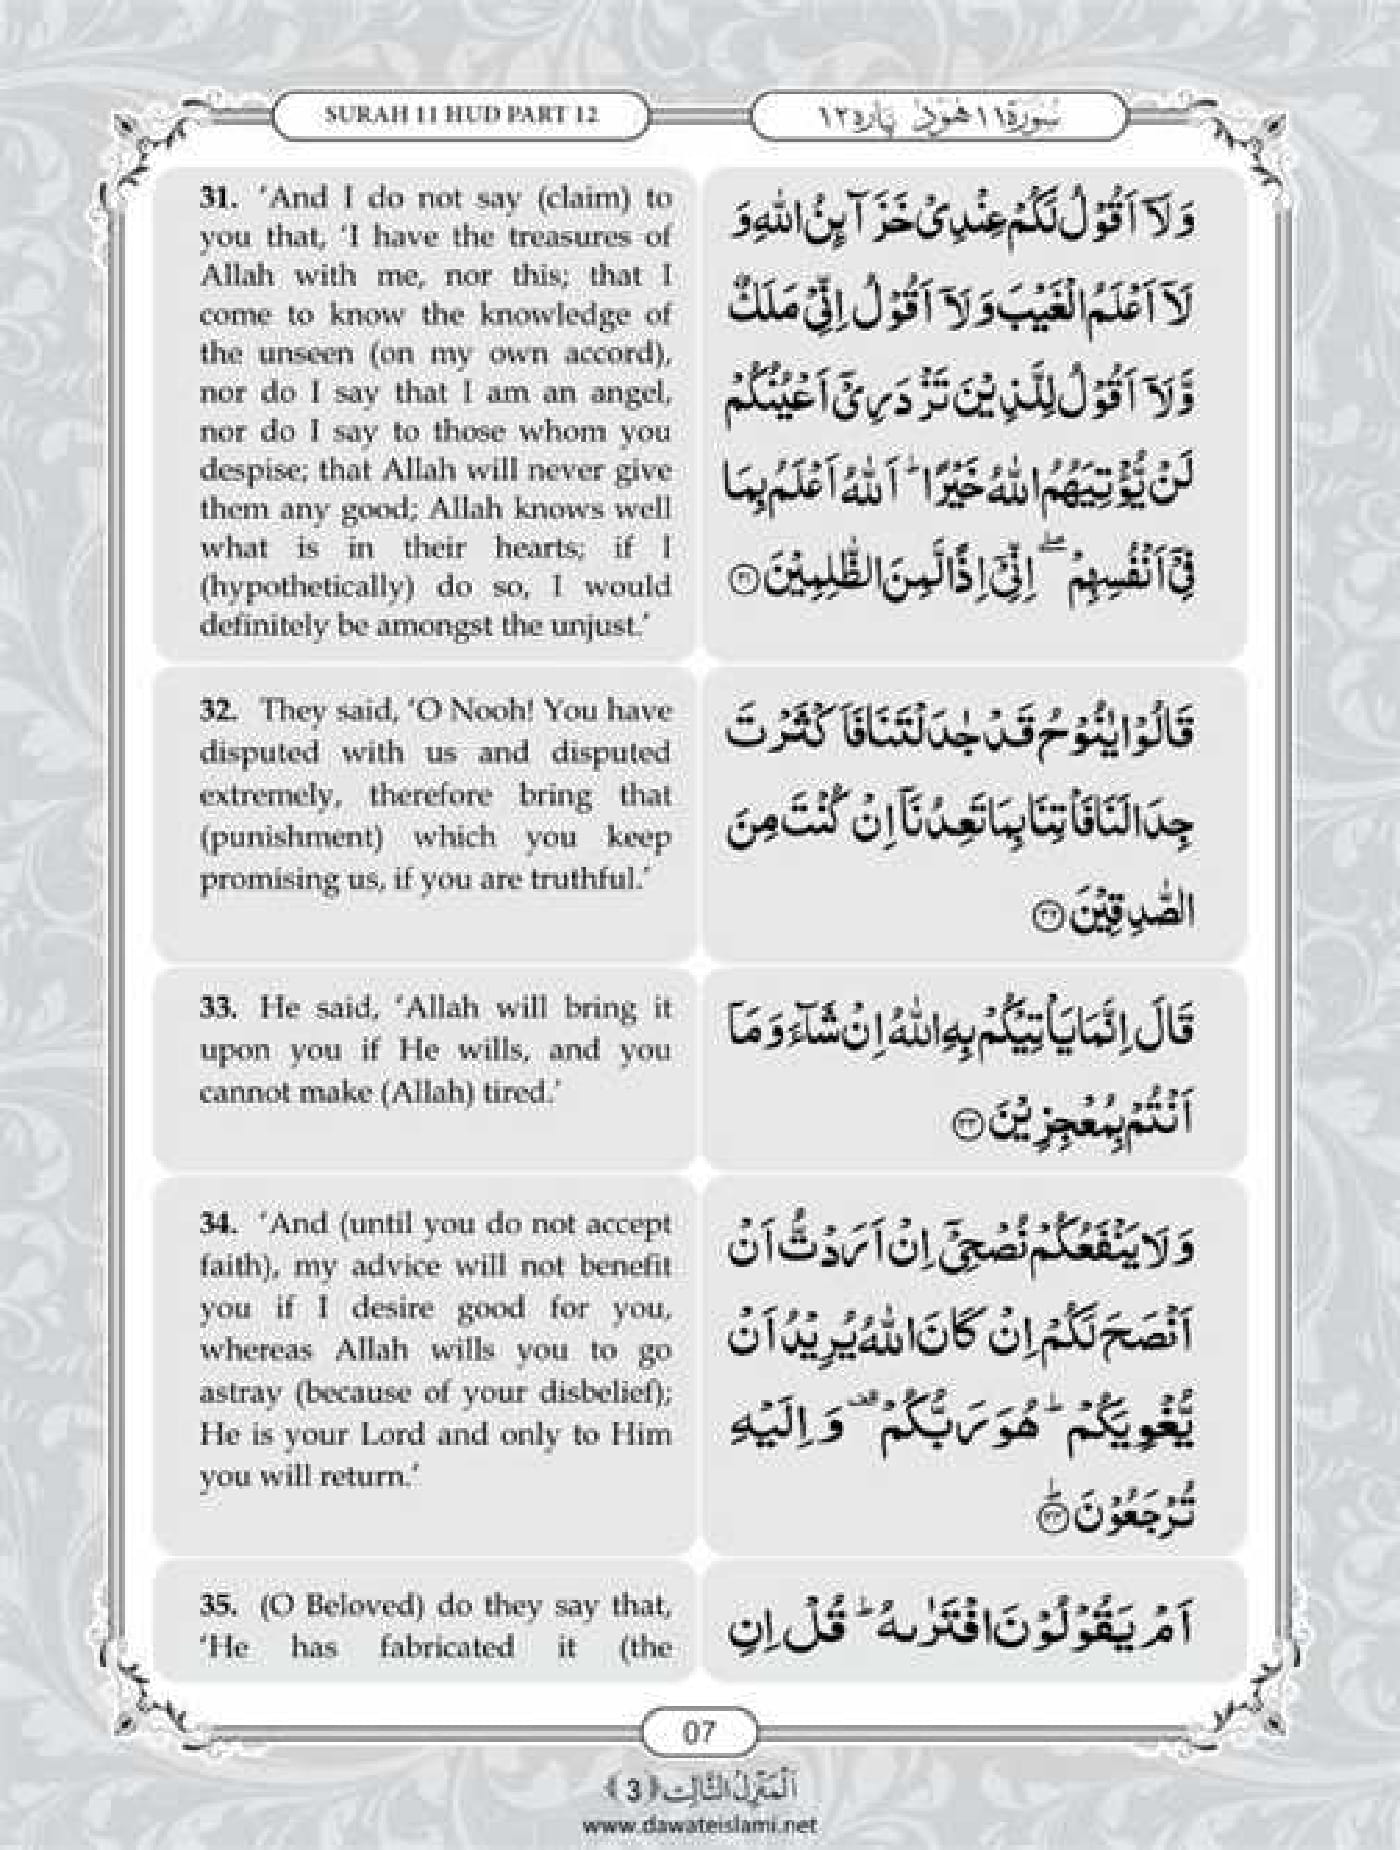 SURAH 11 HUD PART 12
سُوۡرَة ١١ هُوۡد پَارَه ١٢
31. ‘And I do not say (claim) to
you that, ‘I have the treasures of
Allah with me, nor this; that I
come to know the knowledge of
the unseen (on my own accord),
nor do I say that I am an angel,
nor do I say to those whom you
despise; that Allah will never give
them any good; Allah knows well
what is in their hearts; if I
(hypothetically) do so, I would
definitely be amongst the unjust.’
وَلَاۤ اَقُوۡلُ لَكُمۡ عِنۡدِىۡ خَزَآئِنُ اللّٰهِ وَ
لَاۤ اَعۡلَمُ الۡغَيۡبَ وَلَاۤ اَقُوۡلُ اِنِّىۡ مَلَكٌ
وَّلَاۤ اَقُوۡلُ لِلَّذِيۡنَ تَزۡدَرِىۡۤ اَعۡيُنُكُمۡ
لَنۡ يُّؤۡتِيَهُمُ اللّٰهُ خَيۡرًا ؕ اَللّٰهُ اَعۡلَمُ بِمَا
فِىۡۤ اَنۡفُسِهِمۡ ۖۚ اِنِّىۡۤ اِذًا لَّمِنَ الظّٰلِمِيۡنَ ﴿۳۱﴾
32. They said, ‘O Nooh! You have
disputed with us and disputed
extremely, therefore bring that
(punishment) which you keep
promising us, if you are truthful.’
قَالُوۡا يٰنُوۡحُ قَدۡ جٰدَلۡتَنَا فَاَ كۡثَرۡتَ
جِدَالَنَا فَاۡتِنَا بِمَا تَعِدُنَاۤ اِنۡ كُنۡتَ مِنَ
الصّٰدِقِيۡنَ ﴿۳۲﴾
33. He said, ‘Allah will bring it
upon you if He wills, and you
cannot make (Allah) tired.’
قَالَ اِنَّمَا يَاۡتِيۡكُمۡ بِهِ اللّٰهُ اِنۡ شَآءَ وَمَاۤ
اَنۡتُمۡ بِمُعۡجِزِيۡنَ ﴿۳۳﴾
34. ‘And (until you do not accept
faith), my advice will not benefit
you if I desire good for you,
whereas Allah wills you to go
astray (because of your disbelief);
He is your Lord and only to Him
you will return.’
وَلَا يَنۡفَعُكُمۡ نُصۡحِىۡۤ اِنۡ اَرَدْتُّ اَنۡ
اَنۡصَحَ لَكُمۡ اِنۡ كَانَ اللّٰهُ يُرِيۡدُ اَنۡ
يُّغۡوِيَكُمۡ ؕ هُوَ رَبُّكُمۡ ۟ وَ اِلَيۡهِ
تُرۡجَعُوۡنَ ﴿ؕ۳۴﴾
35. (O Beloved) do they say that,
‘He has fabricated it (the
اَمۡ يَقُوۡلُوۡنَ افۡتَرٰٮهُ ؕ قُلۡ اِنِ
07
اَلۡمَنۡزِلُ الثَّالِث ﴿3﴾
www.dawateislami.net